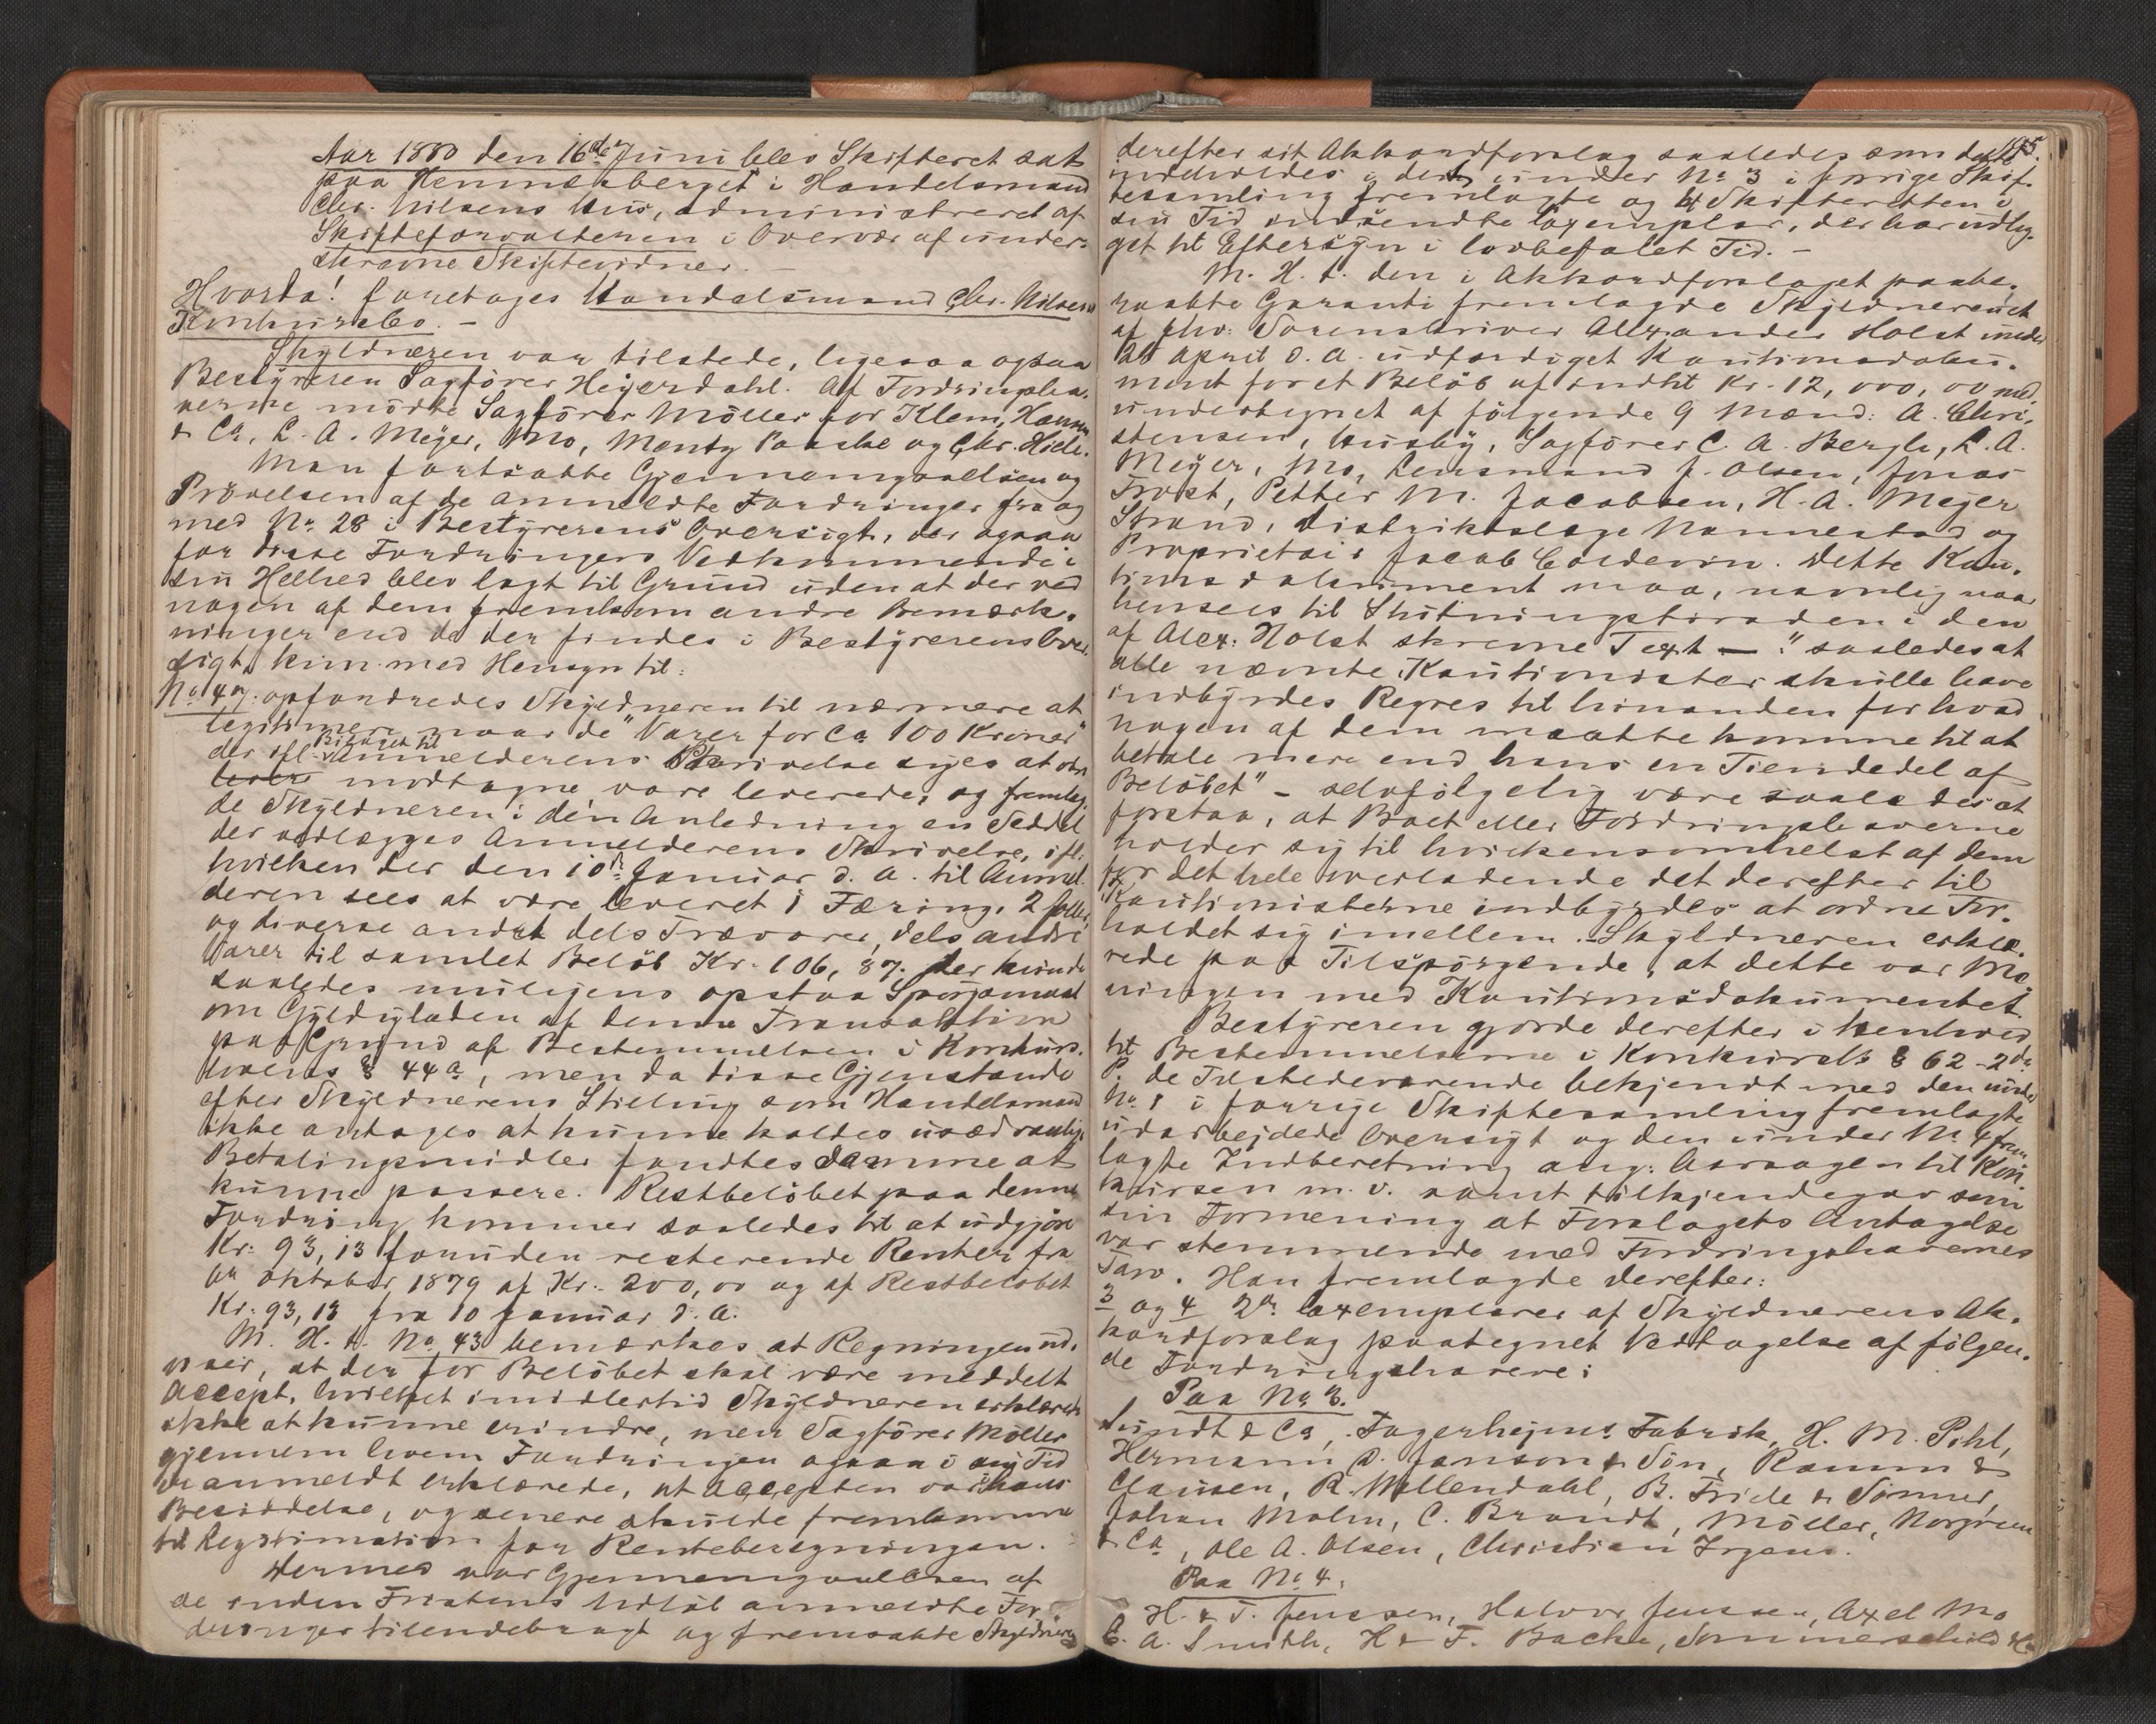 Aar 1880 den 16de Juni blev Skifteret sat
paa Hemnæsberget i Handelsmand
Chr. Nilsens Hus, administreret af
Skifteforvalteren i Overvær af under-
skrevne Skiftevidner. -
Hvorda! foretoges Handelsmand Chr. Nilsens
Konkursbo. -
Skyldneren var tilstede, ligesaa ogsaa
Bestyreren Sagfører Heyerdahl. Af Fordringsha-
verne mødte Sagfører Møller for Klem, Hansen
& Co, L. A. Meyer, Mo, Montz Paaske og Chr. Hiele.
Man fortsatte Gjennemgaaelsen og
Prøvelsen af de anmeldte Fordringer fra og
med No 28 i Bestyrerens Oversigt, der ogsaa
for disse Fordringers Vedkommende i
sin Helhed blev lagt til Grund uden at der ved
nogen af dem fremkom andre Bemærk-
ninger end de der findes i Bestyrerens Over-
sigt, kun med Hensyn til:
No 49. opfordredes Skyldneren til nærmere at
legitimere naar de "Varer for Ca 100 Kroner"
der ifl. Bilaget til Anmelderens Skrivelse siges at være
modtagne vare leverede, og fremlag-
de Skyldneren i den Anledning en Seddel
der vedlægges Anmelderens Skrivelse, ifl.
hvilken der den 10de Januar d. A. til Anmel-
deren sees at være leveret 1 Færing, 2
og diverse andet dels Trævarer, dels andre
Varer til samlet Beløb Kr. 106,87. Der kunde
saaledes muligens opstaa Spørgsmaal
om Gyldigheden af denne Transaktion
paa Grund af Bestemmelsen i Konkurs-
lovens § 44a, men da disse Gjenstande
efter Skyldnerens Stilling som Handelsmand
ikke antages at kunne kaldes usædvanlige
Betalingsmidler fandtes denne at
kunne passere. Restbeløbet paa denne
Fordring kommer saaledes til at udgjøre
Kr. 93,13 foruden resterende Renter fra
Oktober 1879 af Kr. 200,00 og af Restbeløbet
Kr. 93,13 fra 10 Januar d. A.
M. H. t. No 43 bemærkes at Regningen ud-
viser, at der for Beløbet skal være meddelt
Accept, hvilket imidlertid Skyldneren erklærede
ikke at kunne erindre, men Sagfører Møller
gjennem hvem Fordringen ogsaa i sin Tid
er anmeldt erklærede, at Accepten var i hans
Besiddelse, og senere skulde fremkomme
til Legitimation for Renteberegningen.
Hermed var Gjennemgaaelsen af
de inden Fristens Udløb anmeldte For-
dringer tilendebragt og fremsatte Skyldneren
195.
derefter sit Akkordforslag saaledes som dette
indeholdes i det under No 3 i forrige Skif-
tesamling fremlagte og til Skifteretten i
sin Tid indsendte Exemplar, der har udlig-
get til Eftersyn i lovbefalet Tid. -
M. H. t. den i Akkordforslaget paabe-
raabte Garanti fremlagde Skyldneren et
af fhv. Sorenskriver Alexander Holst under
28 April d. A. udfærdiget Kautionsdoku-
ment for et Beløb af indtil Kr. 12,000,00 med
undertegnet af følgende 9 Mænd: A. Chri-
stensen, Husby, Sagfører C. A. Bergh, L. A.
Meyer, Mo, Lensmand J. Olsen, Jonas
Frost, Petter M. Jacobsen, H. A. Meyer
Strand, Distriktslæge Nannestad og
Proprietair Jacob Coldevin. Dette Kau-
tionsdokument maa, navnlig naar
hensees til Slutningstiraden i den
af Alex. Holst skrevne Text - : "saaledes at
alle nævnte Kautionister skulle have
indbyrdes Regres til hinanden for hvad
nogen af dem maatte komme til at
betale mere end hans en Tiendedel af
Beløbet" - selvfølgelig være saaledes at
forstaa, at Boet eller Fordringshaverne
holder sig til hvilkensomhelst af dem
for det hele overladende det derefter til
Kautionisterne indbyrdes at ordne For-
holdet sig imellem. - Skyldneren erklæ-
rede paa Tilspørgende, at dette var Me-
ningen med Kautionsdokumentet.
Bestyreren gjorde derefter i Henhold
til Bestemmelserne i Konkursl. § 62 - 2de
P. de Tilstedeværende bekjendt med den under
No 1 i forrige Skiftesamling fremlagte
udarbejdede Oversigt og den under No 4 frem-
lagte Indberetning ang. Aarsagen til Kon-
kursen m. v. samt tilkjendegav som
sin Formening at Forslagets Antagelse
var stemmende med Fordringshavernes
Tarv. Han fremlagde derefter:
3 og 4 2de Exemplarer af Skyldnerens Ak-
kordforslag paategnet Vedtagelse af følgen-
de Fordringshavere:
Paa No 3.
Lundt & Co, Fagerheims Fabrik, H. M. Pihl,
Hermann D. Janson & Søn, Ramm &
Clausen, R. Mellendahl, B. Friele & Sønner,
Johan Malm, C. Brandt, Møller, Norgreen
& Co, Ole A. Olsen, Christian Irgens.
Paa No 4.
H. & T. Jenssen, Halvor Jenssen, Axel Mo
E. A. Smith, H & F. Bache, Sommerschield &